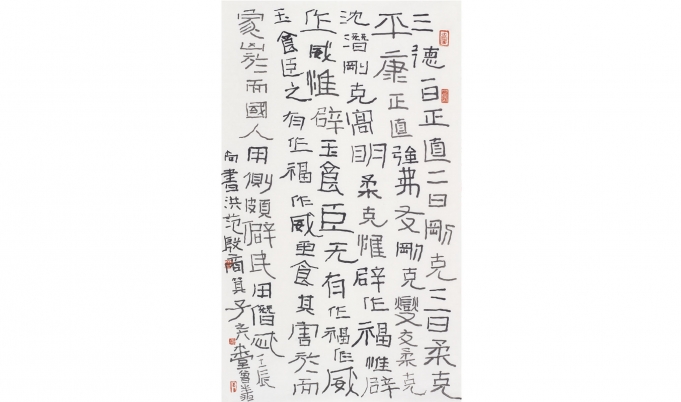 三德一曰正直二曰剛克三曰柔克
平康正直強弗友剛克燮友柔克
沈潛剛克高明柔克惟辟作福惟辟
作威惟辟玉食臣无有作福作威
玉食臣之有作福作威玉食其害於而
家凶於而國人用側頗僻民用僭忒壬辰
尚書洪范殷商箕子言